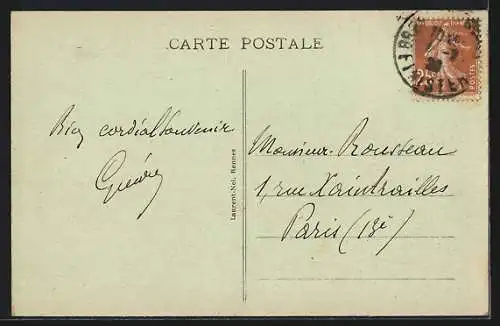 CARTE POSTALE
Bien cordial souvenir
Monsieur Rousseau
1, rue Xaintrailles
Paris (13è)
Laurent-Nel, Rennes
FINISTERE